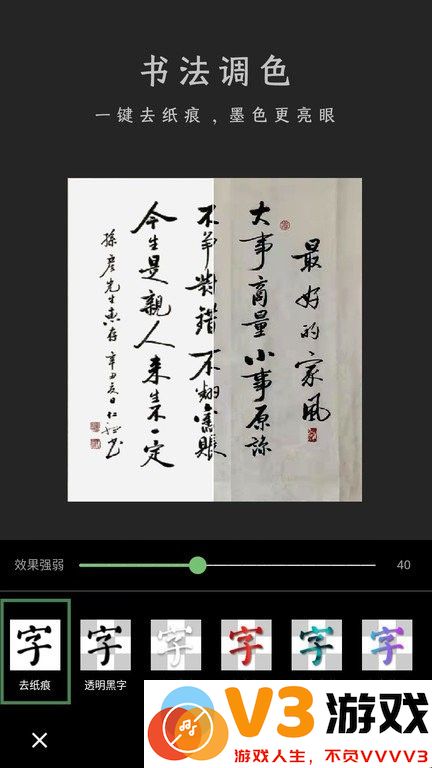 书法调色
一键去纸痕，墨色更亮眼
最好的家風
大事商量小事原諒
不争對錯不翻舊賬
今生是親人来生不一定
孫彦先生惠存辛丑
效果强弱
40
字
字
字
字
字
字
去纸痕
透明黑字
V3游戏
游戏人生，不负VVVV3